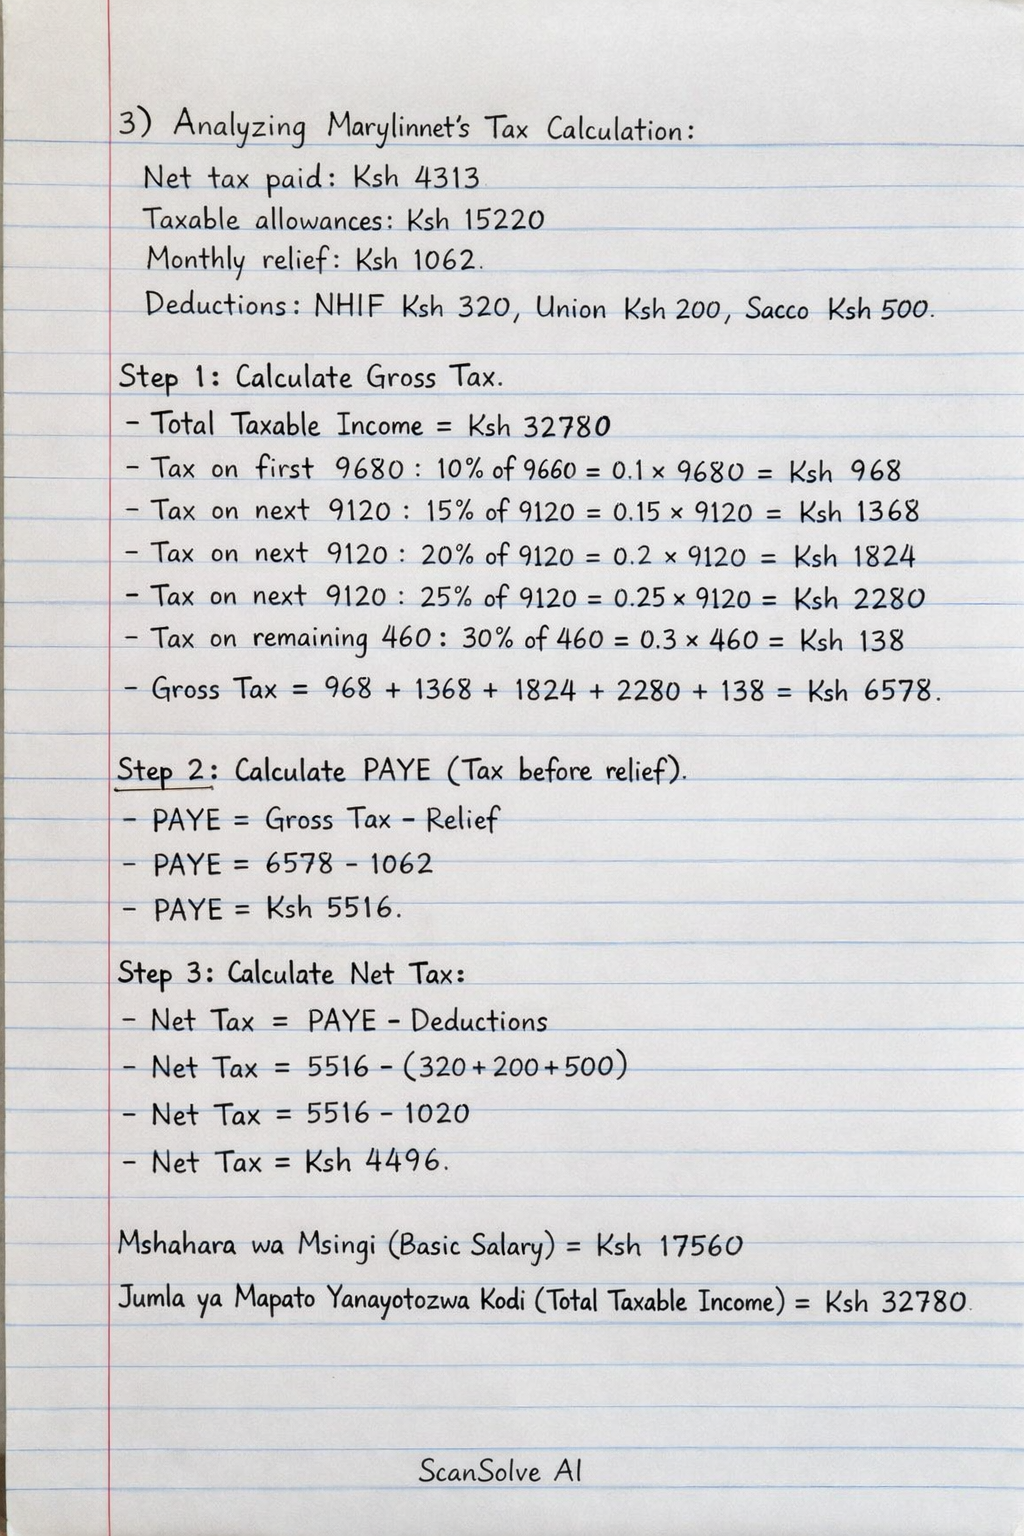 3) Analyzing Marylinnet's Tax Calculation:
Net tax paid: Ksh 4313
Taxable allowances: Ksh 15220
Monthly relief: Ksh 1062.
Deductions: NHIF Ksh 320, Union Ksh 200, Sacco Ksh 500.
Step 1: Calculate Gross Tax.
- Total Taxable Income = Ksh 32780
- Tax on first 9680 : 10% of 9660 = 0.1 × 9680 = Ksh 968
- Tax on next 9120 : 15% of 9120 = 0.15 × 9120 = Ksh 1368
- Tax on next 9120 : 20% of 9120 = 0.2 × 9120 = Ksh 1824
- Tax on next 9120 : 25% of 9120 = 0.25 × 9120 = Ksh 2280
- Tax on remaining 460 : 30% of 460 = 0.3 × 460 = Ksh 138
- Gross Tax = 968 + 1368 + 1824 + 2280 + 138 = Ksh 6578.
Step 2: Calculate PAYE (Tax before relief).
- PAYE = Gross Tax - Relief
- PAYE = 6578 - 1062
- PAYE = Ksh 5516.
Step 3: Calculate Net Tax:
- Net Tax = PAYE - Deductions
- Net Tax = 5516 - (320+200+500)
- Net Tax = 5516 - 1020
- Net Tax = Ksh 4496.
Mshahara wa Msingi (Basic Salary) = Ksh 17560
Jumla ya Mapato Yanayotozwa Kodi (Total Taxable Income) = Ksh 32780.
ScanSolve AI